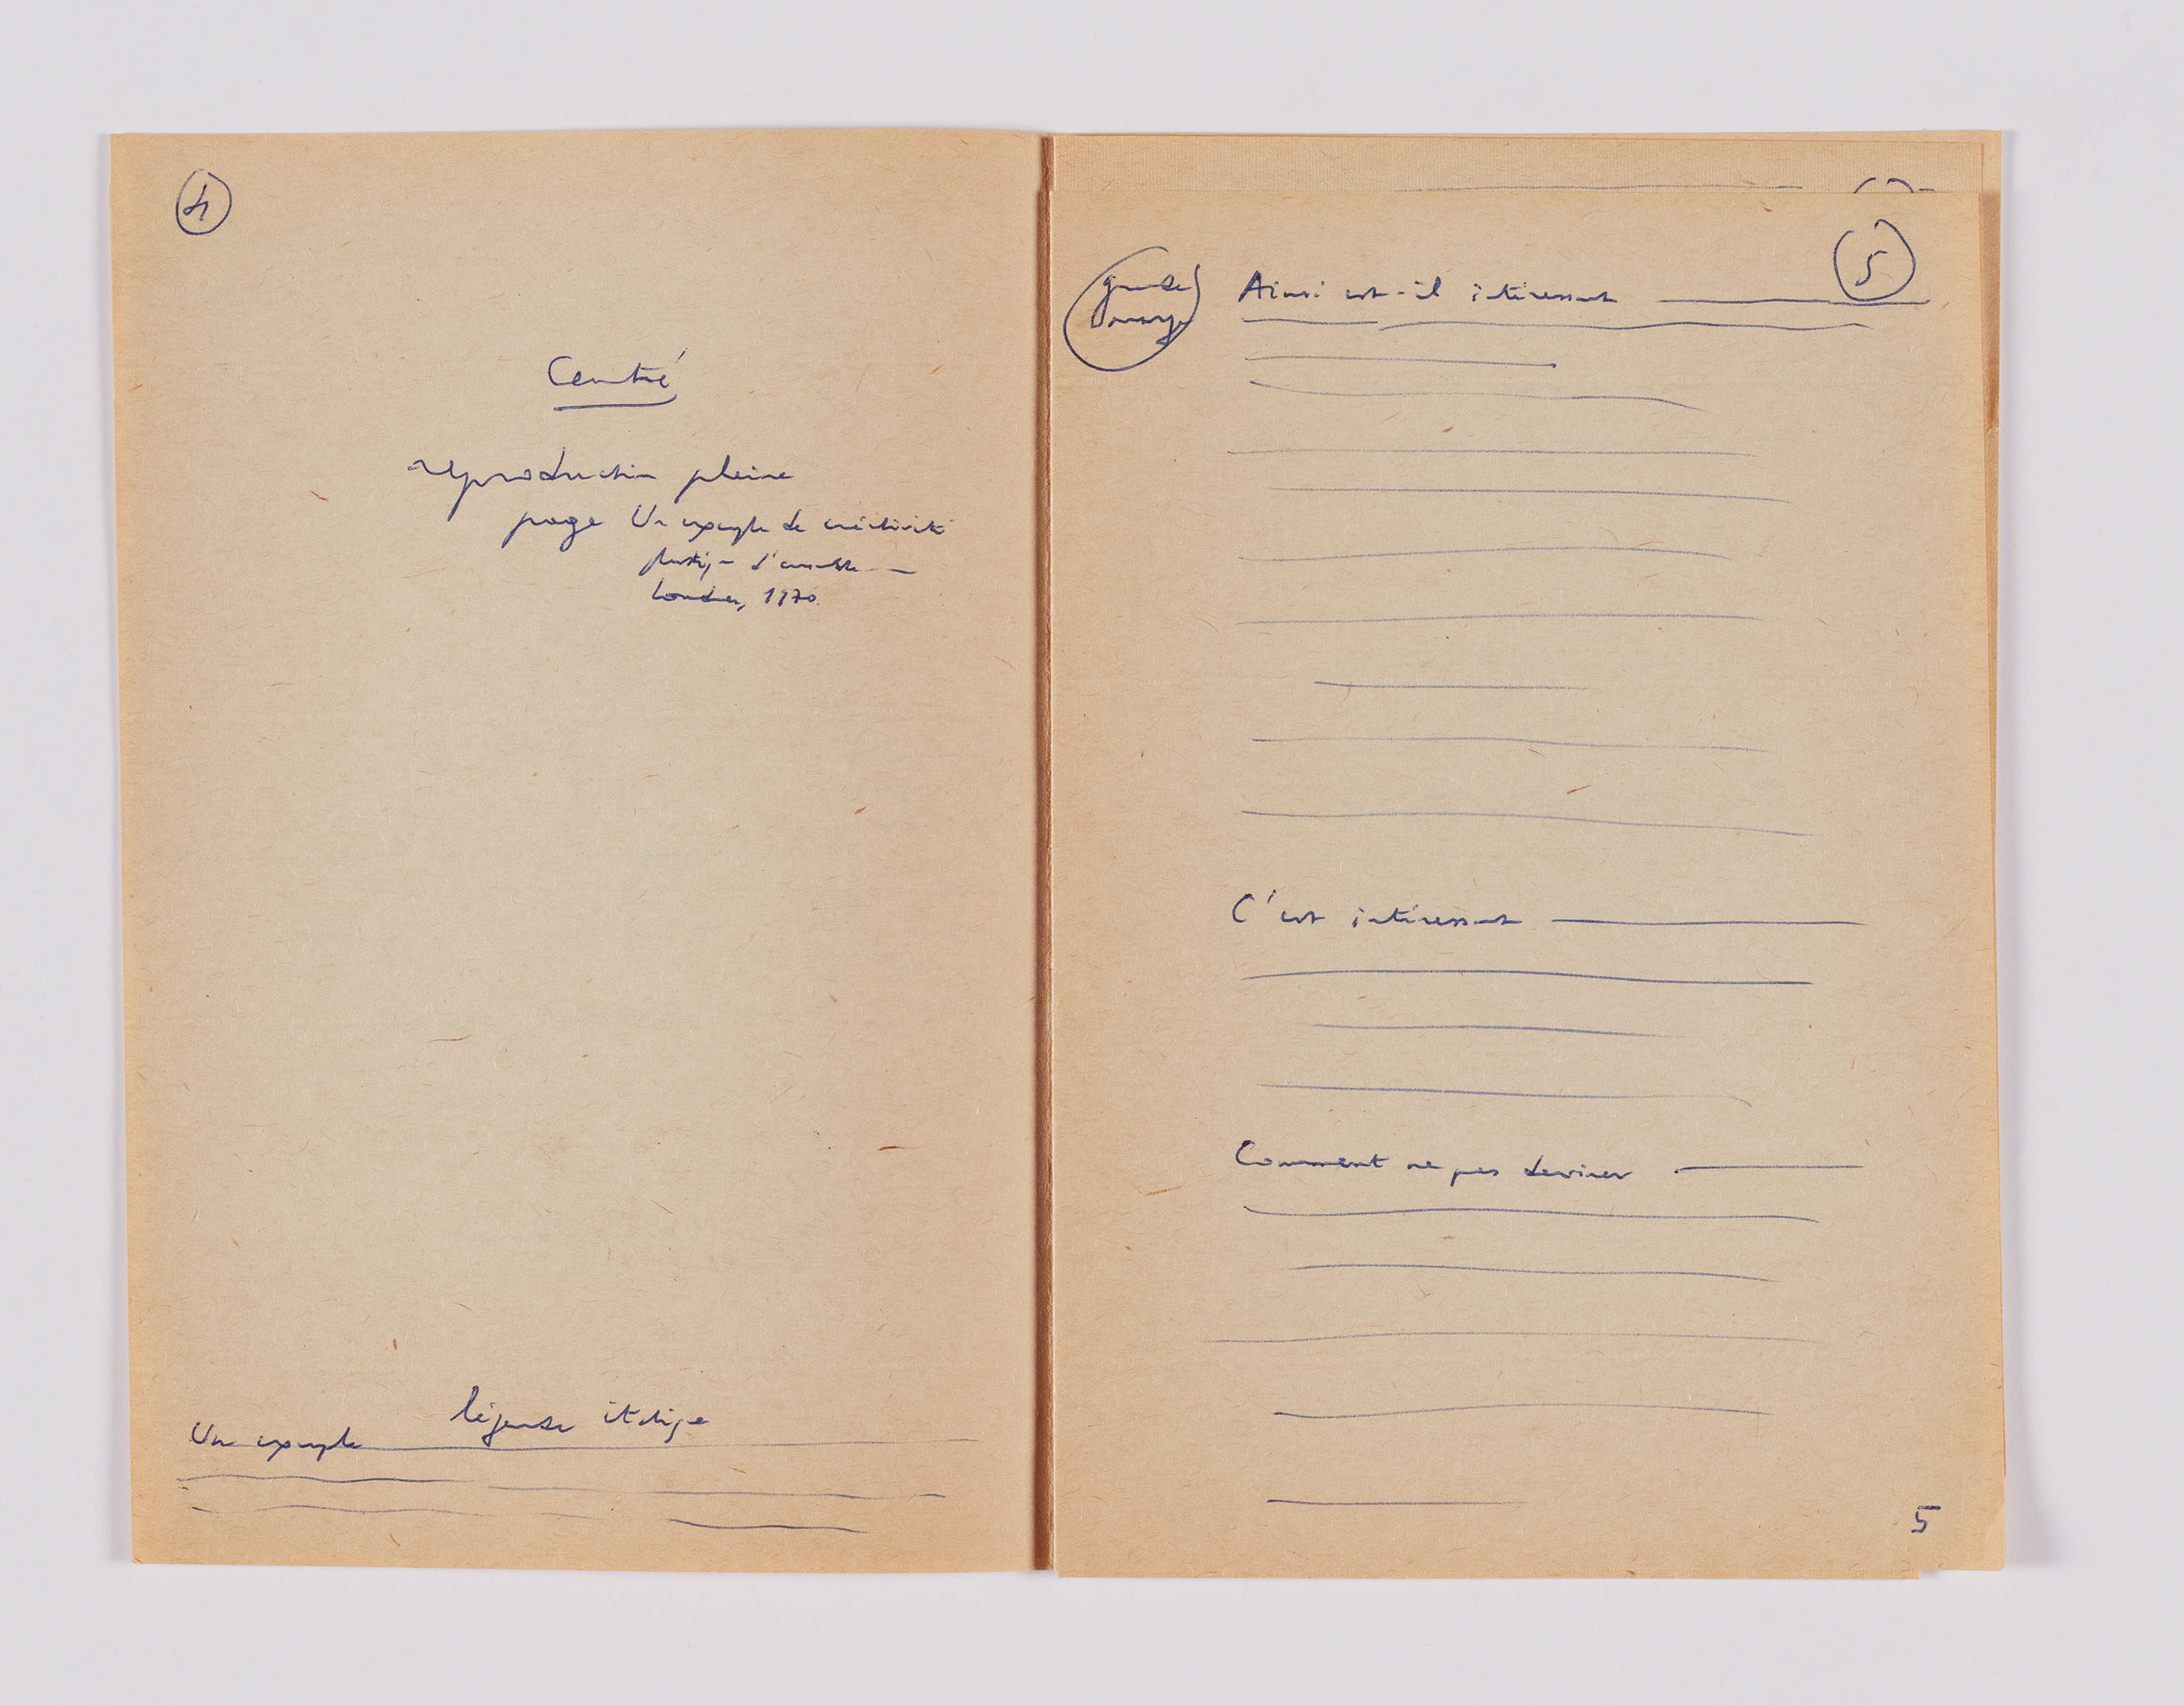 4
Centré
reproduction pleine
page Un exemple de créativité
plastique d'ensemble
Londres, 1970.
légende italique
Un exemple
5
grande
marge
Ainsi est-il intéressant
C'est intéressant
Comment ne pas deviner
5